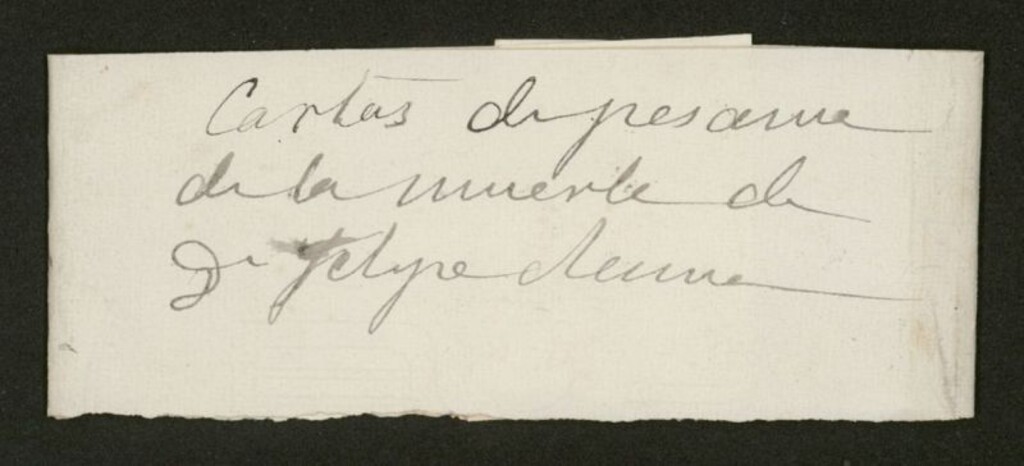 Cartas de pesame
de la muerte de
Dn Felipe